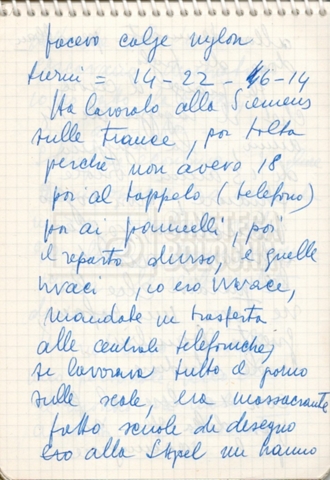 facevo calze nylon
turni = 14-22 - 6-14
Ha lavorato alla Siemens
sulle trance, poi tolta
perchè non avevo 18
poi al tappeto (telefono)
poi ai pannelli, poi
il reparto chiuso, e quelle
vivaci, io ero vivace,
mandate in trasferta
alle centrali telefoniche;
si lavorava tutto il giorno
sulle scale, era massacrante
fatto scuola di disegno
ero alla mi hanno